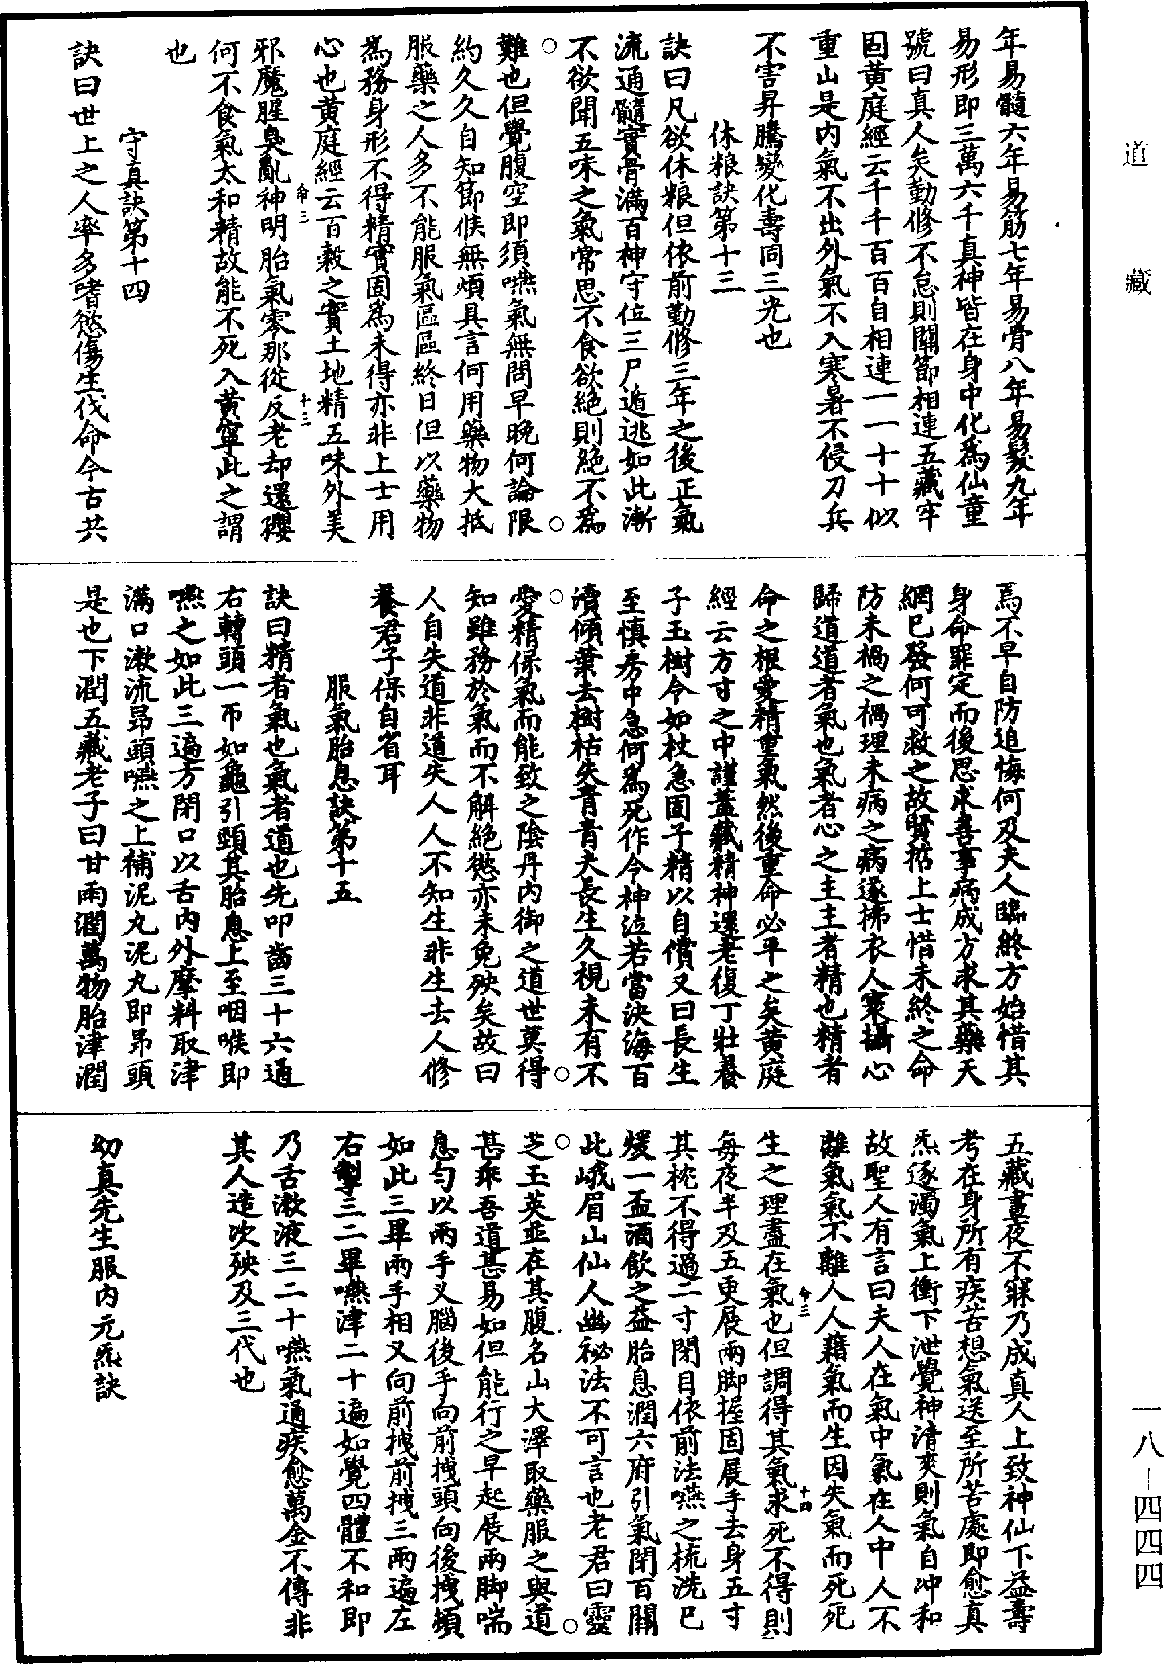 道藏
年易髓六年易筋七年易骨八年易髮九年
易形即三萬六千真神皆在身中化為仙童
號曰真人矣勤修不怠則關節相連五藏牢
固黃庭經云千千百百自相連一一十十似
重山是內氣不出外氣不入寒暑不侵刀兵
不害昇騰變化壽同三光也
休粮訣第十三
訣曰凡欲休粮但依前勤修三年之後正氣
流通髓實骨滿百神守位三尸遁逃如此漸
不欲聞五味之氣常思不食欲絕則絕不為
難也但覺腹空即須嚥氣無問早晚何論限
約久久自知節候無煩具言何用藥物大抵
服藥之人多不能服氣區區終日但以藥物
為務身形不得精實固為未得亦非上士用
心也黃庭經云百穀之實土地精五味外美
命三
十三
邪魔腥臭亂神明胎氣零那從反老却還孾
何不食氣太和精故能不死入黃寧此之謂
也
守真訣第十四
訣曰世上之人率多嗜慾傷生伐命今古共
焉不早自防追悔何及夫人臨終方始惜其
身命罪定而後思求善事病成方求其藥天
網已發何可救之故賢哲上士惜未終之命
防未禍之禍理未病之病遂拂衣人寰攝心
歸道道者氣也氣者心之主主者精也精者
命之根愛精重氣然後重命必平之矣黃庭
經云方寸之中謹蓋藏精神還老復丁壯養
子玉樹令如杖急固子精以自償又曰長生
至慎房中急何為死作令神泣若當決海百
瀆傾葉去樹枯失青青夫長生久視未有不
愛精保氣而能致之陰丹內御之道世莫得
知雖務於氣而不解絕慾亦未免殃矣故曰
人自失道非道失人人不知生非生去人修
養君子保自省耳
服氣胎息訣第十五
訣曰精者氣也氣者道也先叩齒三十六通
右轉頭一帀如龜引頸其胎息上至咽喉即
嚥之如此三遍方閉口以舌內外摩料取津
滿口漱流昂頭嚥之上補泥丸泥丸即昂頭
是也下潤五藏老子曰甘雨潤萬物胎津潤
五藏晝夜不寐乃成真人上致神仙下益壽
考在身所有疾苦想氣送至所苦處即愈真
炁逐濁氣上衝下泄覺神清爽則氣自冲和
故聖人有言曰夫人在氣中氣在人中人不
離氣氣不離人人藉氣而生因失氣而死死
命三
十四
生之理盡在氣也但調得其氣求死不得則
每夜半及五更展兩脚握固展手去身五寸
其枕不得過二寸閉目依前法嚥之梳洗已
煖一盃酒飲之益胎息潤六府引氣閉百關
此峨眉山仙人幽祕法不可言也老君曰靈
芝玉英並在其腹名山大澤取藥服之與道
甚乖吾道甚易如但能行之早起展兩脚喘
息勻以兩手叉腦後手向前拽頭向後拽頻
如此三畢兩手相叉向前拽前拽三兩遍左
右掣三二畢嚥津二十遍如覺四體不和即
乃舌漱液三二十嚥氣通疾愈萬金不傳非
其人造次殃及三代也
幼真先生服內元炁訣
一八-四四四